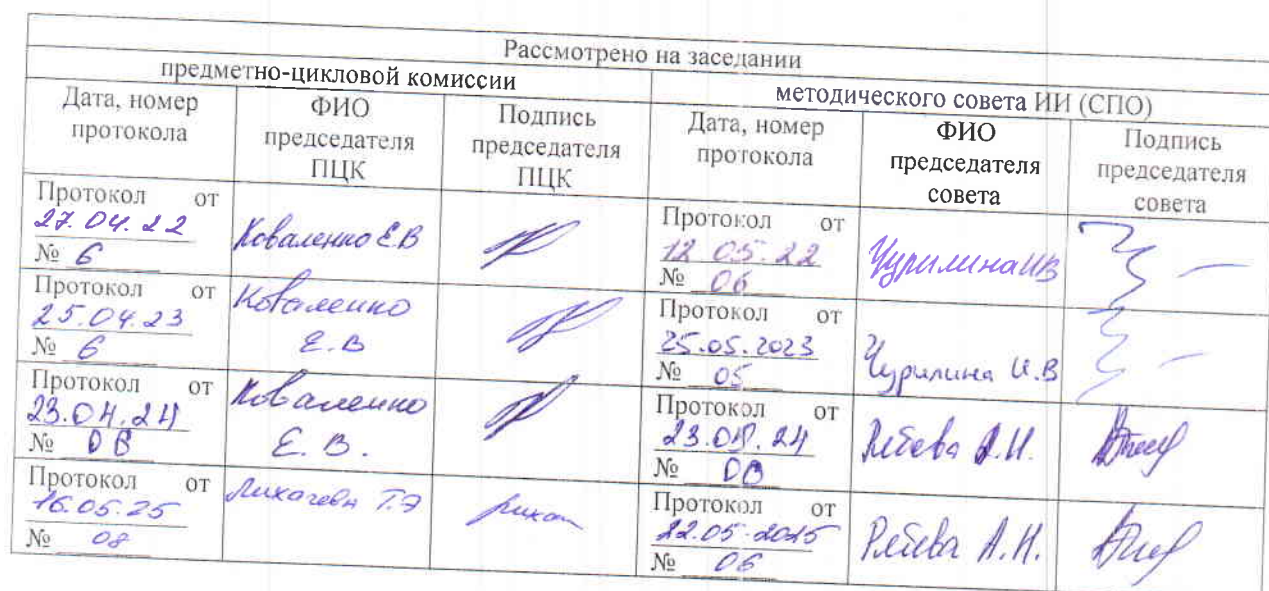 Рассмотрено на заседании
предметно-цикловой комиссии
методического совета ИИ (СПО)
Дата, номер
протокола
ФИО
председателя
ПЦК
Подпись
председателя
ПЦК
Дата, номер
протокола
ФИО
председателя
совета
Подпись
председателя
совета
Протокол от
27.04.22
№ 6
Коваленко Е.В
Протокол от
12.05.22
№ 06
Чурилина ИВ
Протокол от
25.04.23
№ 6
Коваленко
Е.В
Протокол от
25.05.2023
№ 05
Чурилина И.В
Протокол от
23.04.24
№
Коваленко
Е.В.
Протокол от
№
А.Н.
Протокол от
16.05.25
№ 08
Лихачева Т.Э
Протокол от
22.05.2025
№ 06
А.Н.